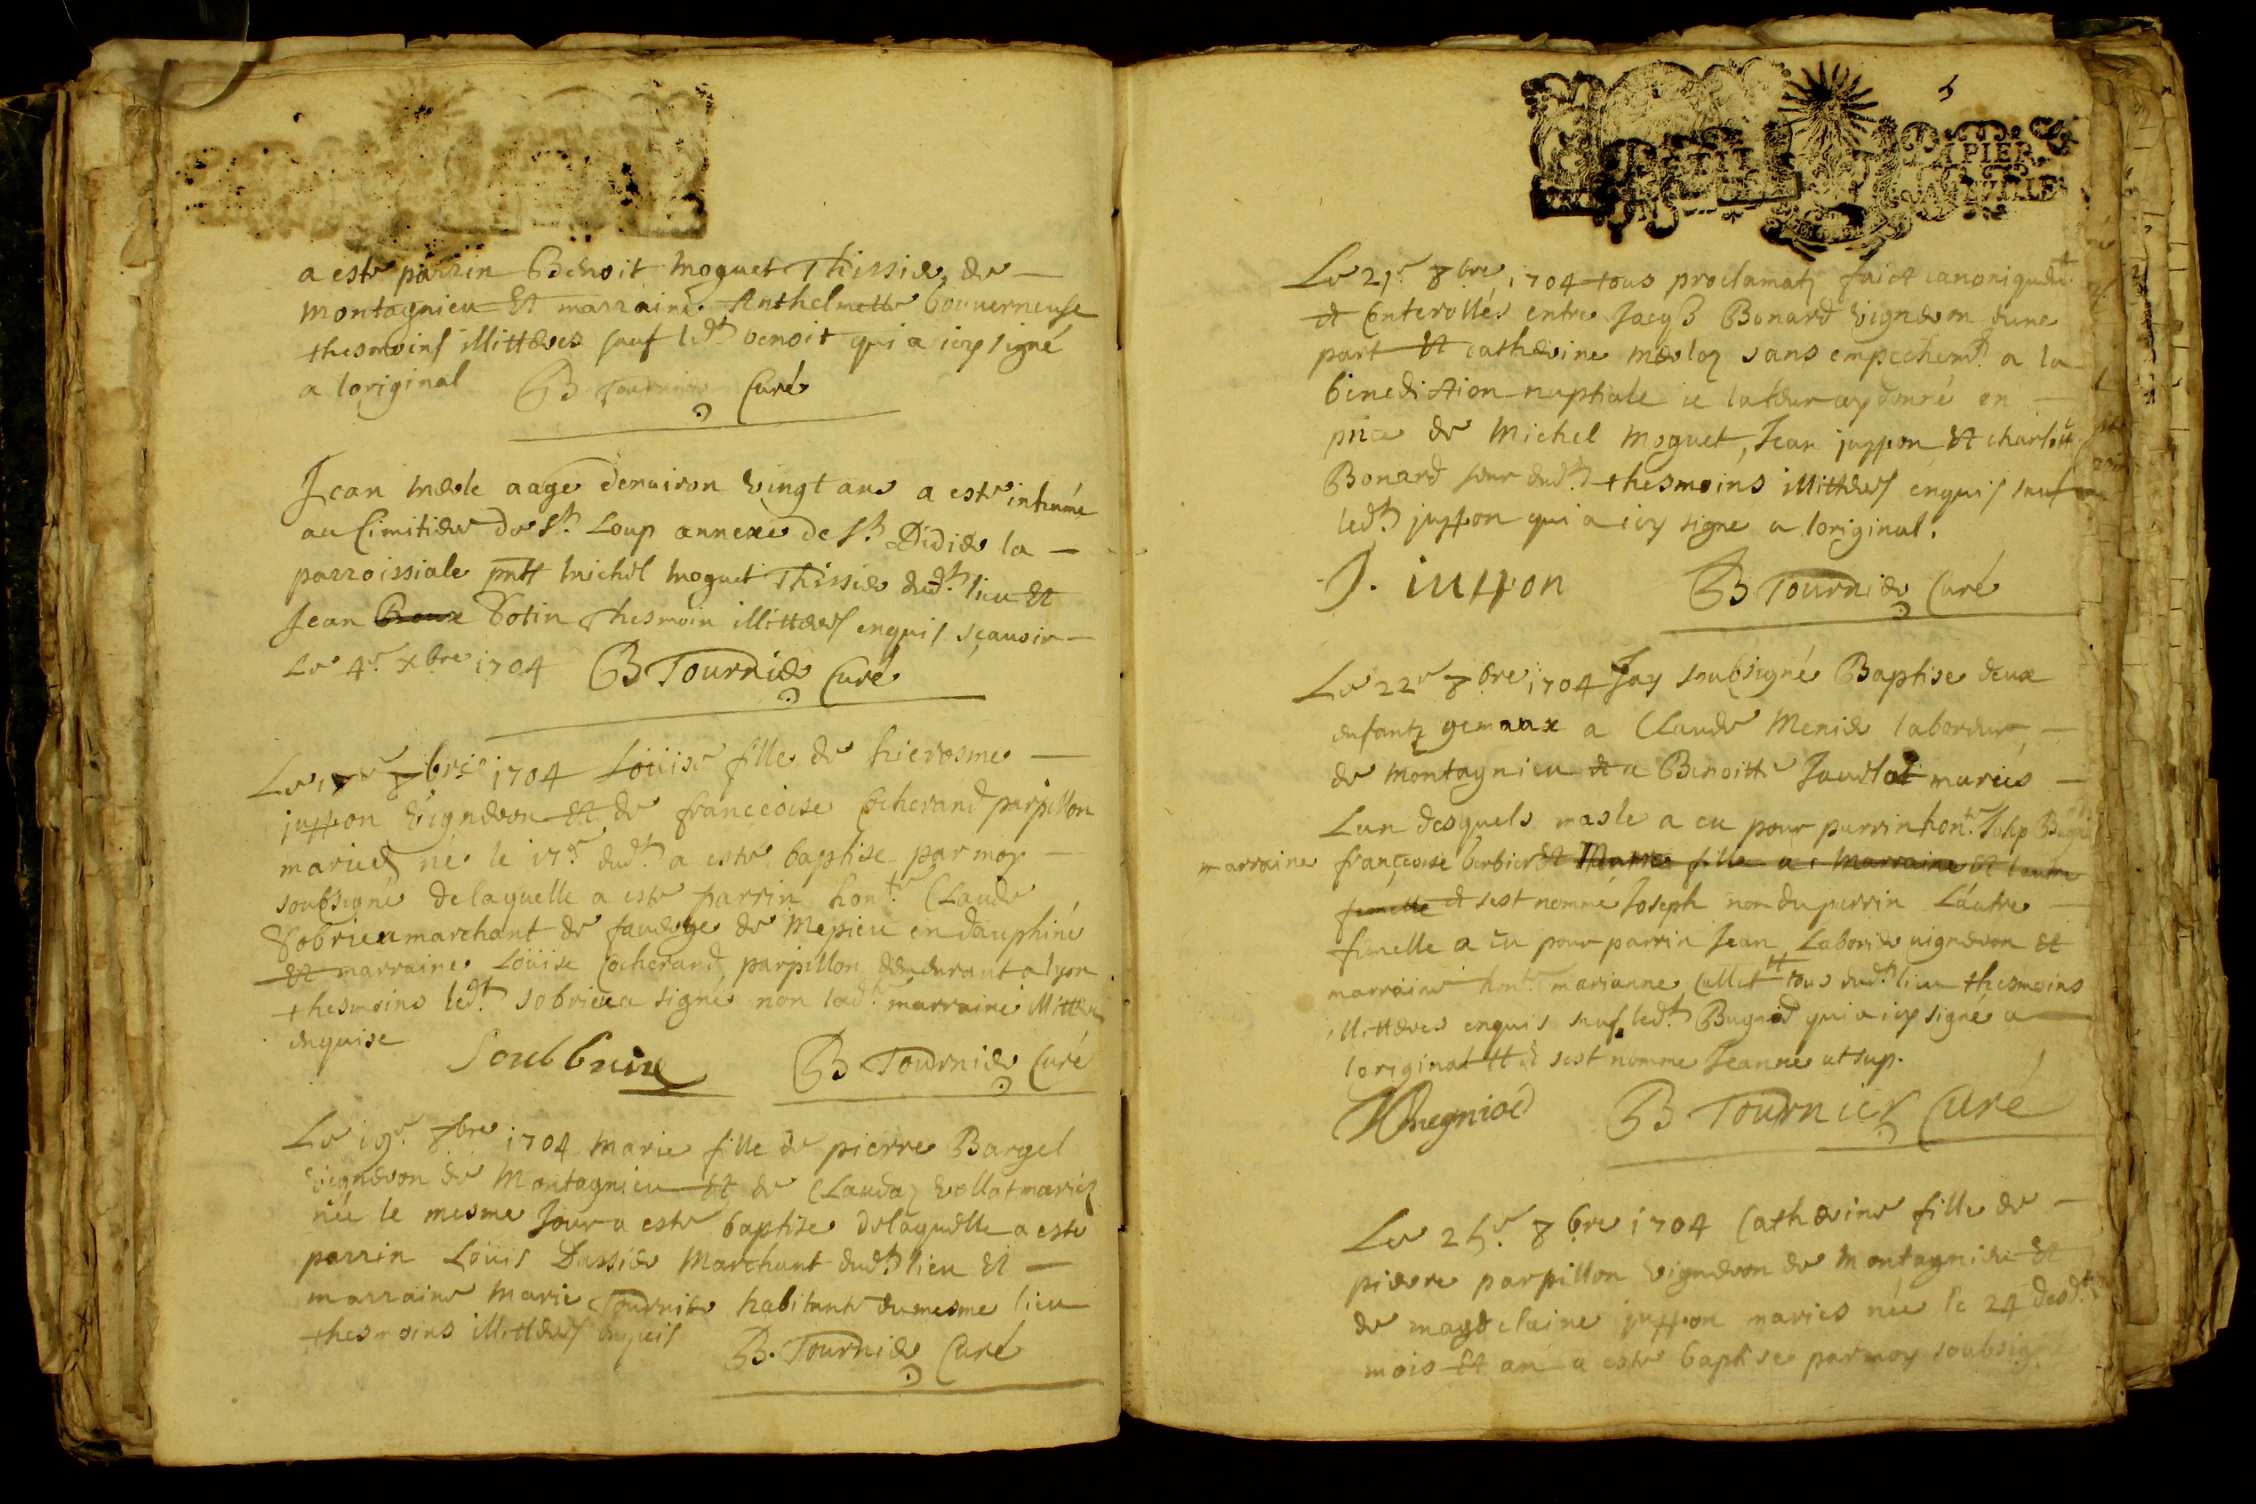 a este parrin Benoit moguet Thissier, de
montagnieu Et marraine Anthelmette Gouverneuse
thesmoins illitteres sauf led.t benoit qui a icy signé
a loriginal B Tournier Curé
Jean merle aagé denuiron vingt ans a este inhumé
au Cimitier de S.t Loup annexe de S.t Didier la
parroissiale pntt michel moguet Thissier dud.t lieu Et
Jean Votin Thesmoin illitteres enquis scauoir
Le 4.e xbre 1704 B Tournier Curé
1704 Loüise fille de hierosme
juppon vigneron Et de francoise Cocherand parpillon
maries né le 17.e dud.t a este baptise par moy
soubsigné de laquelle a este parrin hon.te Claude
Sobrieu marchant de faverge de Mepieu en dauphiné
Et marraine Loüise Cocherand parpillon demeurant a lyon
thesmoins led.t sobrieu a signé non lad.te marraine illittere
enquise
Soubbrieu B Tournier Curé
Le 19.e 8bre 1704 marie fille de pierre Bargel
vigneron de Montagnieu Et de Clauda vollat maries
née le mesme Jour a este baptise de laquelle a este
parrin Loüis Dassier Marchant dud.t lieu Et
marraine Marie Tournier habitante du mesme lieu
thesmoins illitteres enquis
B. Tournier Curé
PAPIER
Le 21.e 8bre 1704 tous proclamatz faict canoniquem.t
et Conterollés entre Jacqs Bonard vigneron dune
part Et catherine merloz sans empechem.t a la
binediction nuptiale ie la leur ay donné en
pnce de Michel moguet, Jean juppon Et charlotte
Bonard seur dud.t thesmoins illitteres enquis sauf
led.t juppon qui a icy signe a loriginal.
J. iuppon B Tournier Curé
Le 22e 8bre 1704 Jay soubsigné Baptise deux
enfantz gemaux a Claude Menier laboreur
de montagnieu et a Benoitte Jaudot maries
Lun desquels masle a eu pour parrin hon.te Josep
marraine francoise berbier Et Marie fille a Marraine Et lautre
femelle et sest nommé Joseph non du perrin Lautre
femelle a eu pour parrin Jean Laborier vigneron Et
marraine hon.te marianne Cullet tous dud.t lieu thesmoins
illitteres enquis sauf led.t Bugniod qui a icy signé a
loriginal Et sest nomme Jeanne ut sup.
B Tournier Curé
Le 25.e 8bre 1704 Catherine fille de
pierre parpillon vigneron de Montagnieu Et
de magdelaine juppon maries née le 24 desd.t
mois Et an a este baptise par moy soubsigné